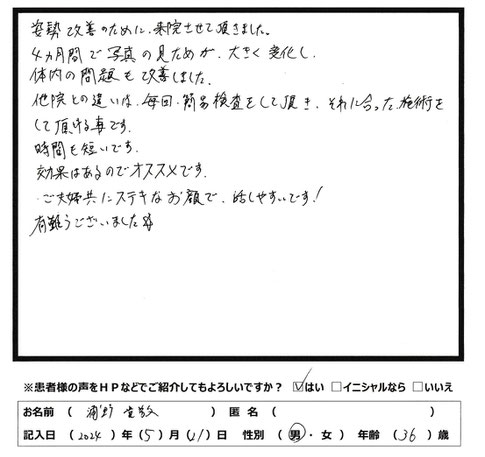 姿勢改善のために、来院させて頂きました。
4ヵ月間で写真の見ためが、大きく変化し、
体内の問題も改善しました。
他院との違いは、毎回、簡易検査をして頂き、それに合った施術を
して頂ける事です。
時間も短いです。
効果はあるのでオススメです。
ご夫婦共にステキなお顔で、話しやすいです!
有難うございました
※患者様の声をHPなどでご紹介してもよろしいですか? ☑はい □イニシャルなら □いいえ
お名前 ( 浦野 ) 匿名 ( )
記入日 (2024) 年 (5) 月 (21) 日 性別 (男・女) 年齢 (36) 歳